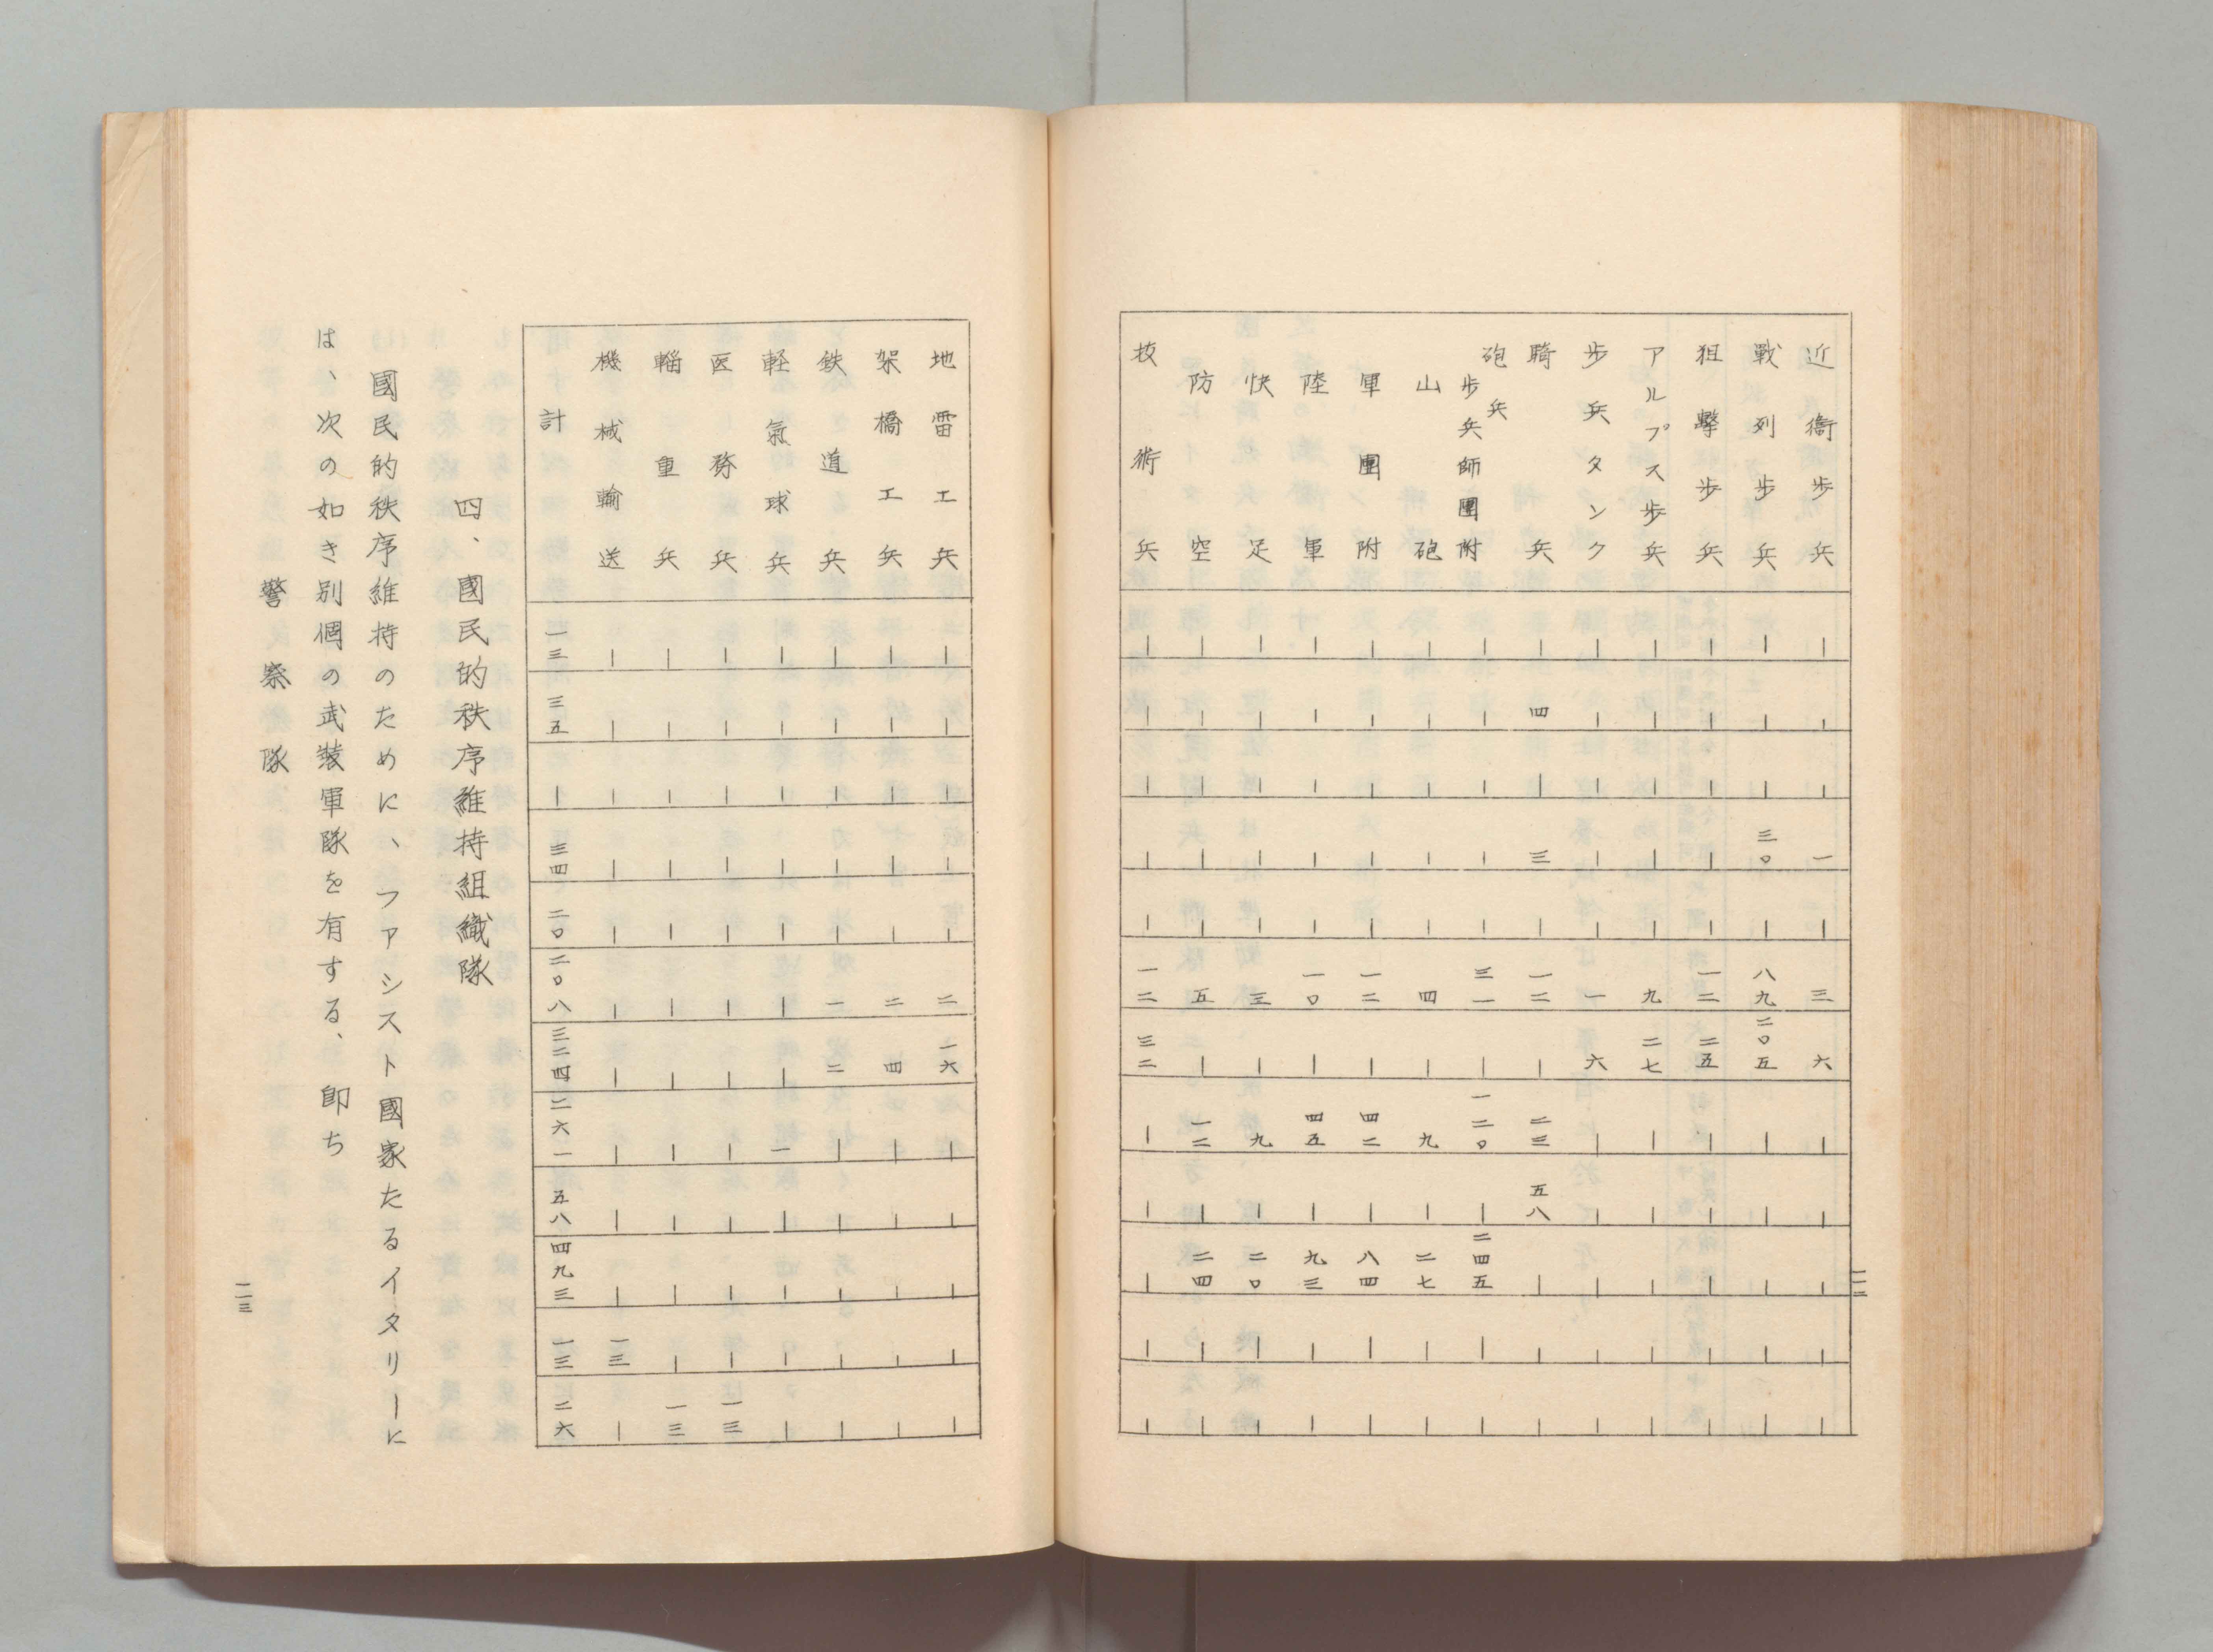 近衛歩兵 | | | 一 | 三 六 | | | | |
戰列歩兵 | | | 三〇 | 八九 二〇五 | | | | |
狙撃歩兵 | | | | | 一二 二五 | | | | |
アルプス歩兵 | | | | | 九 二七 | | | | |
歩兵タンク | | | | | 一 六 | | | | |
騎兵 | 四 | 三 | 一二 | 二三 五八 | | |
砲兵
歩兵師團附 | | | | | 三一 | 一二〇 | 二四五 | |
山砲 | | | | | 四 | 九 | 二七 | |
軍團附 | | | | | 一二 | 四二 | 八四 | |
陸軍 | | | | | 一〇 | 四五 | 九三 | |
快足 | | | | | 三 | 九 | 二〇 | |
防空 | | | | | 五 | 一二 | 二四 | |
技術兵 | | | | | 一二 三二 | | | | |
二二
地雷工兵 | | | | | 二 一六 | | | | |
架橋工兵 | | | | | 二 四 | | | | |
鉄道兵 | | | | | 一 二 | | | | |
軽氣球兵 | | | | | | | 一 | | | |
医務兵 | | | | | | | | | | | 一三
輜重兵 | | | | | | | | | | | 一三
機械輸送 | | | | | | | | | | 一三 |
計 一三 三五 | 三四 二〇 二〇八 三二四 二六一 五八 四九三 一三 二六
四、國民的秩序維持組織隊
國民的秩序維持のために、ファシスト國家たるイタリーに
は、次の如き別個の武装軍隊を有する、即ち
警察隊
二三